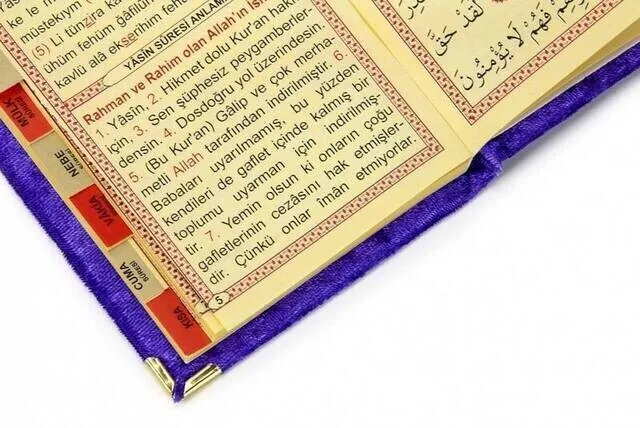 ke le m
müstekıym
(5) Li tünzira ka
ühüm fehüm ğâfilûn
kavlü alâ ekserihim feh
YASİN SÛRESİ ANLAM
Rahman ve Rahim olan Allah'ın is
1. Yâsîn, 2. Hikmet dolu Kur'an hakkı
için, 3. Sen şüphesiz peygamberler
densin. 4. Dosdoğru yol üzerindesin.
5. (Bu Kur'an) Gâlip ve çok merha-
metli Allah tarafından indirilmiştir. 6.
Babaları uyarılmamış, bu yüzden
kendileri de gaflet içinde kalmış bir
toplumu uyarman için indirilmiş-
tir. 7. Yemin olsun ki onların çoğu
gafletlerinin cezasını hak etmişler-
dir. Çünkü onlar îmân etmiyorlar.
5
MÜLK
SÛRESİ
NEBE
VAKIA
CUMA
SÛRESİ
KISA
لَقَدْ حَقَّ
فَهُمْ لَا يُؤْمِنُونَ